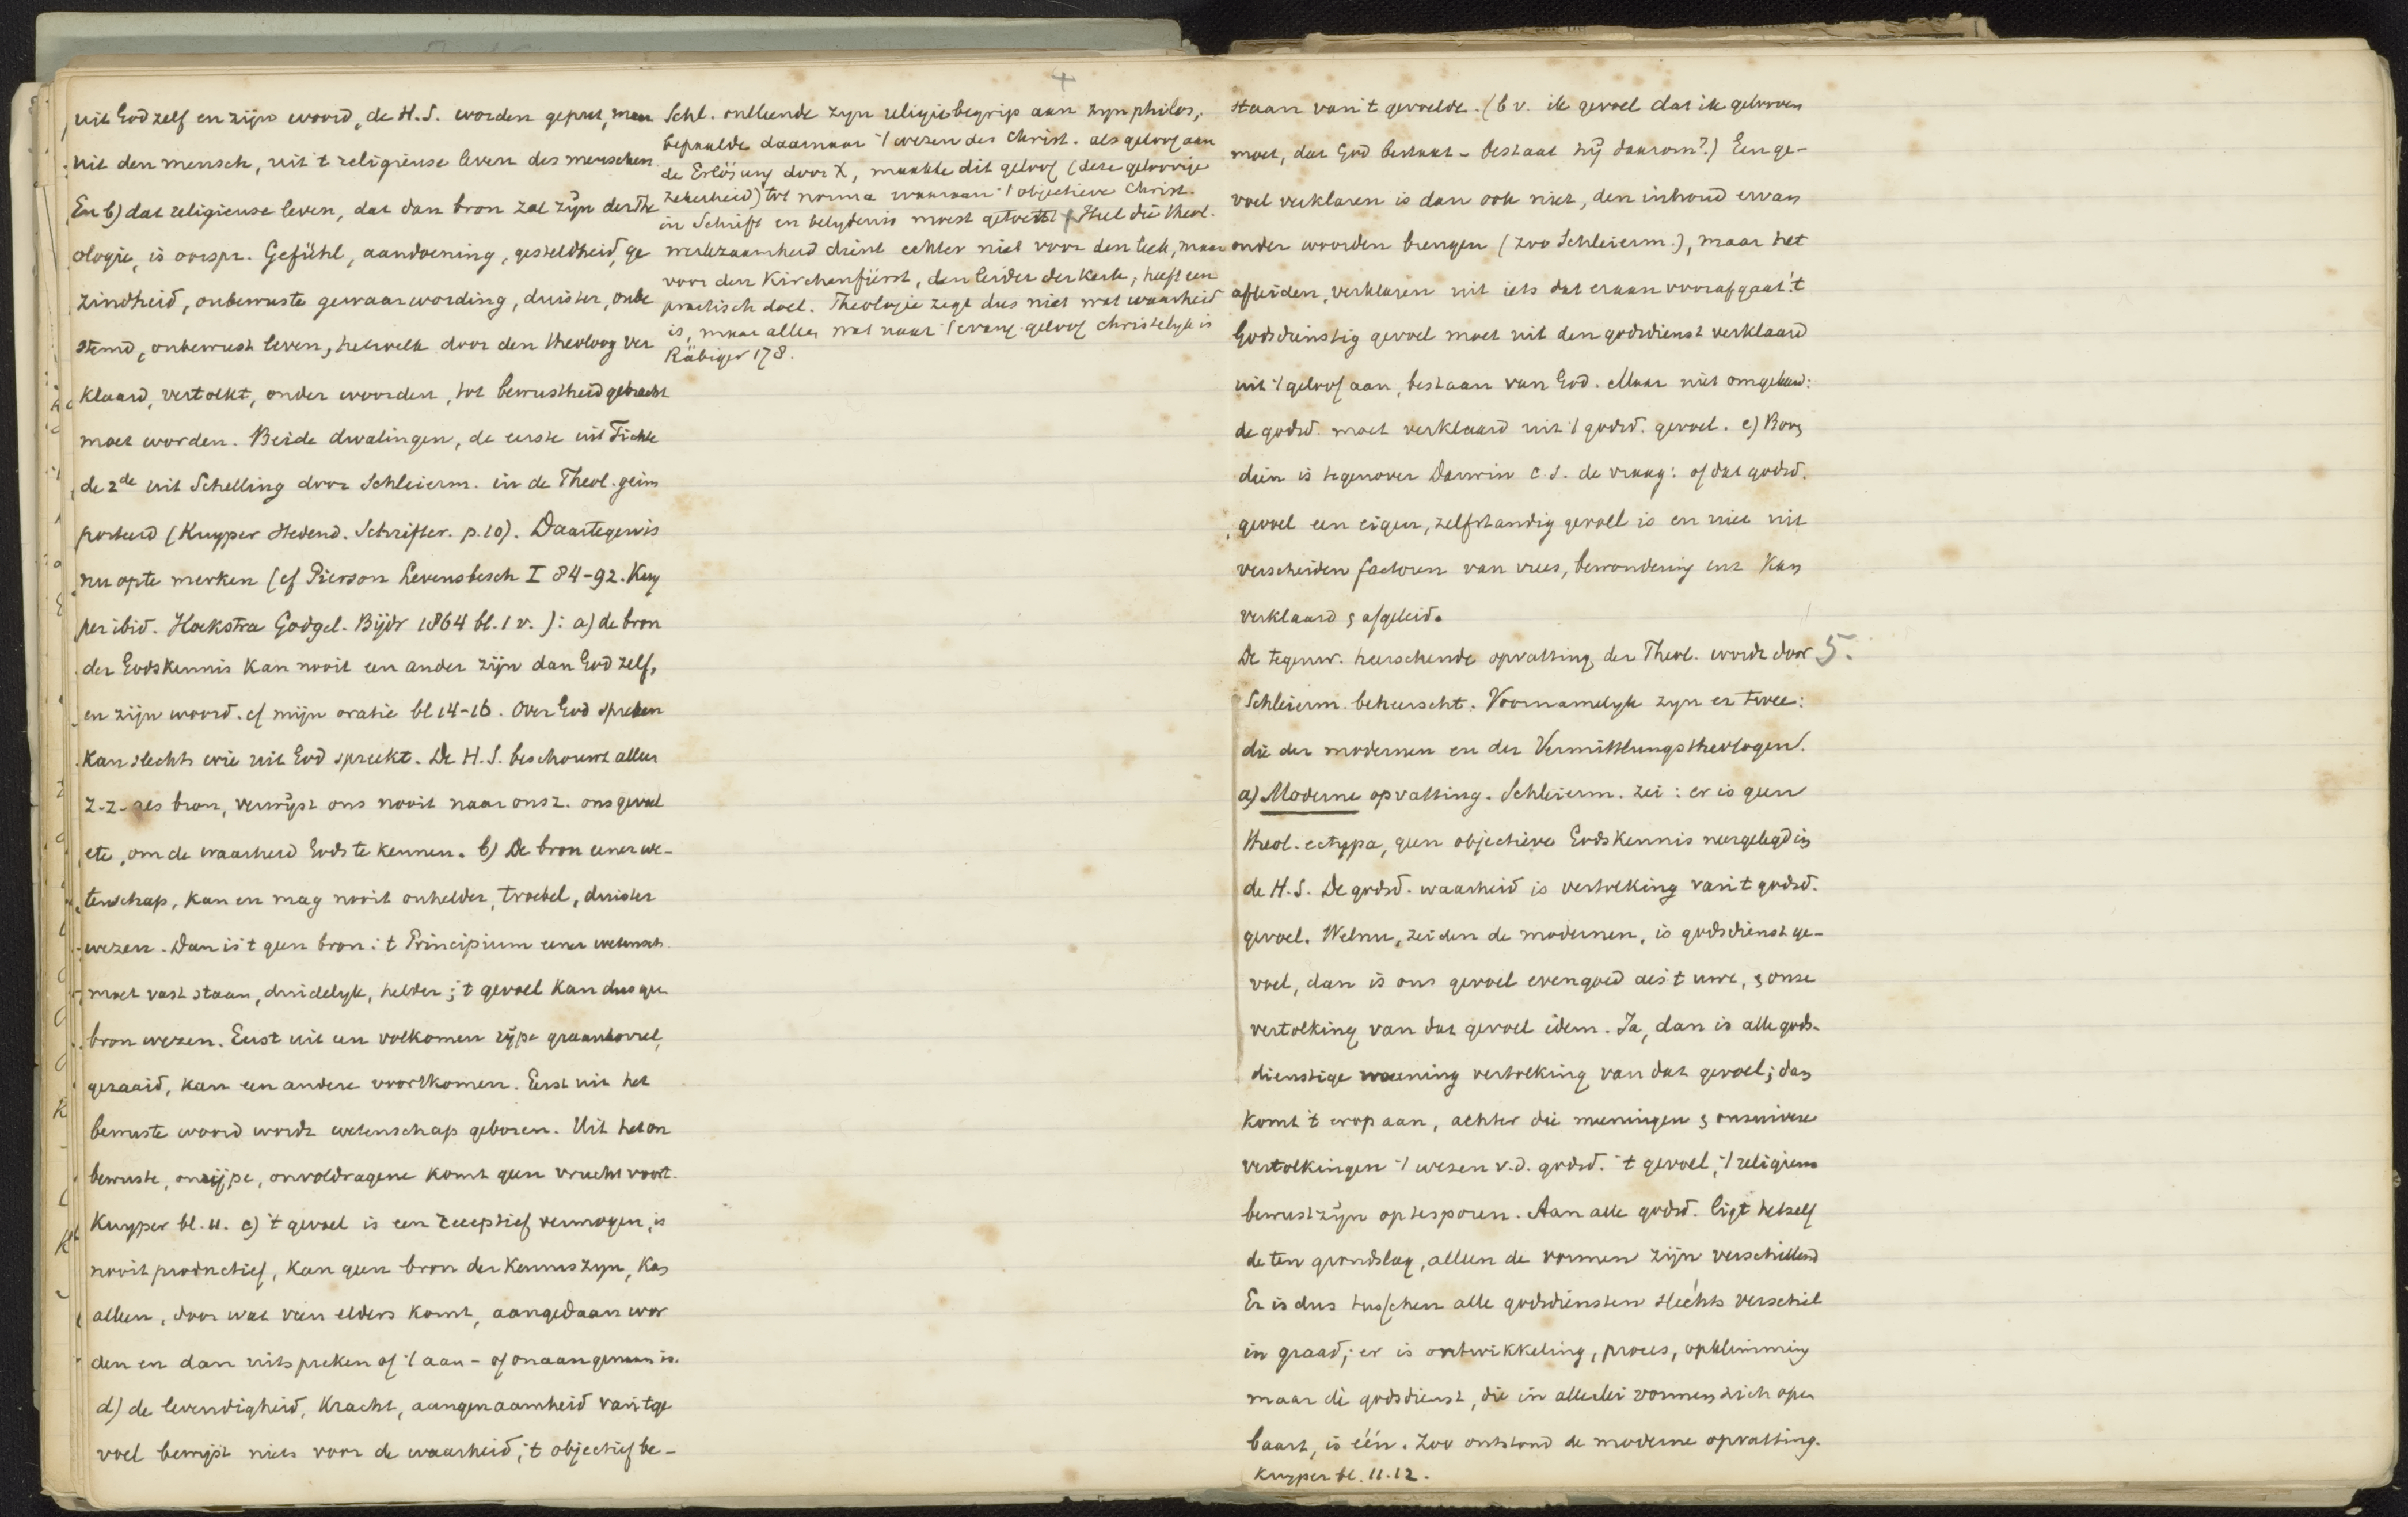 uit God zelf en zijn woord, de H.S. worden geput, maar
uit den mensch, uit 't religieuse leven des menschen.
En b) dat religieuse leven, dat dan bron zal zijn der The
ologie, is oorspr. Gefühl, aandoening, gesteldheid, ge
zindheid, onbewuste gewaarwording, duister, onbe
stemd, onbewust leven, hetwelk door den theoloog ver
klaard, vertolkt, onder woorden, tot bewustheid gebracht
moet worden. Beide dwalingen, de eerste uit Fichte
de 2de uit Schelling door Schleierm. in de Theol. geim
porteerd (Kuyper Hedend. Schrifter. p. 10). Daartegen is
nu op te merken (cf Pierson Levensbesch I 84-92. Kuy
per ibid. Hoekstra Godgel. Bijdr 1864 bl. 1 v.): a) de bron
der Godskennis kan nooit een ander zijn dan God zelf,
en zijn woord. cf mijn oratie bl 14-16. Over God spreken
kan slechts wie uit God spreekt. De H.S. beschouwt alleen
z-z- als bron, verwijst ons nooit naar ons z. ons gevoel
etc, om de waarheid Gods te kennen. b) De bron eener we-
tenschap, kan en mag nooit onhelder, troebel, duister
wezen. Dan is 't geen bron: 't Principium eener wetensch.
moet vast staan, duidelyk, helder; 't gevoel kan dus geen
bron wezen. Eerst uit een volkomen rijpe graankorrel,
gezaaid, kan een andere voortkomen. Eerst uit het
bewuste woord wordt wetenschap geboren. Uit het on
bewuste, onrijpe, onvoldragene komt geen vrucht voort.
Kuyper bl. 11. c) 't gevoel is een receptief vermogen, is
nooit productief, kan geen bron der kennis zyn, kan
alleen, door wat van elders komt, aangedaan wor
den en dan uitspreken of 't aan- of onaangenaam is.
d) de levendigheid, kracht, aangenaamheid van 't ge
voel bewijst niets voor de waarheid, 't objectief be-
Schl. ontleende zyn religiebegrip aan zyn philos,
bepaalde daarnaar 't wezen des Christ. als geloof aan
de Erlösung door X, maakte dit geloof (deze geloovige
zekerheid) tot norma waaraan 't objectieve Christ.
in Schrift en belydenis moest getoetst. Heel die theol.
werkzaamheid dient echter niet voor den leek, maar
voor den Kirchenfürst, den leider der kerk, heeft een
practisch doel. Theologie zegt dus niet wat waarheid
is, maar alleen wat naar 't evang. geloof christelyk is
Räbiger 178.
4
staan van 't gevoelde. (b v. ik gevoel dat ik gelooven
moet, dat God bestaat - bestaat hij daarom?) Een ge-
voel verklaren is dan ook niet, den inhoud ervan
onder woorden brengen (zoo Schleierm.), maar het
afleiden, verklaren uit iets dat eraan voorafgaat. 't
Godsdienstig gevoel moet uit den godsdienst verklaard
uit 't geloof aan, bestaan van God. Maar niet omgekeerd:
de godsd. moet verklaard uit 't godsd. gevoel. e) Boven
dien is tegenover Darwin c.s. de vraag: of dat godsd.
gevoel een eigen, zelfstandig gevoel is en niet uit
verscheiden factoren van vrees, bewondering enz kan
verklaard & afgeleid.
De tegenw. heerschende opvatting der Theol. wordt door 5.
Schleierm. beheerscht. Voornamelyk zyn er twee:
die der modernen en der Vermittlungstheologen.
a) Moderne opvatting. Schleierm. zei: er is geen
theol. ectypa, geen objectieve Godskennis neergelegd in
de H.S. De godsd. waarheid is vertolking van 't godsd.
gevoel. Welnu, zeiden de modernen, is godsdienst ge-
voel, dan is ons gevoel evengoed als 't uwe, & onze
vertolking van dat gevoel idem. Ja, dan is alle gods-
dienstige meening vertolking van dat gevoel; dan
komt 't erop aan, achter die meeningen & onzuivere
vertolkingen 't wezen v.d. godsd. 't gevoel, 't religieus
bewustzijn optesporen. Aan alle godsd. ligt hetzelf
de ten grondslag, alleen de vormen zijn verschillend
Er is dus tusschen alle godsdiensten slechts verschil
in graad; er is ontwikkeling, proces, opklimming
maar de godsdienst, die in allerlei vormen zich open
baart, is één. Zoo ontstond de moderne opvatting.
Kuyper bl. 11.12.